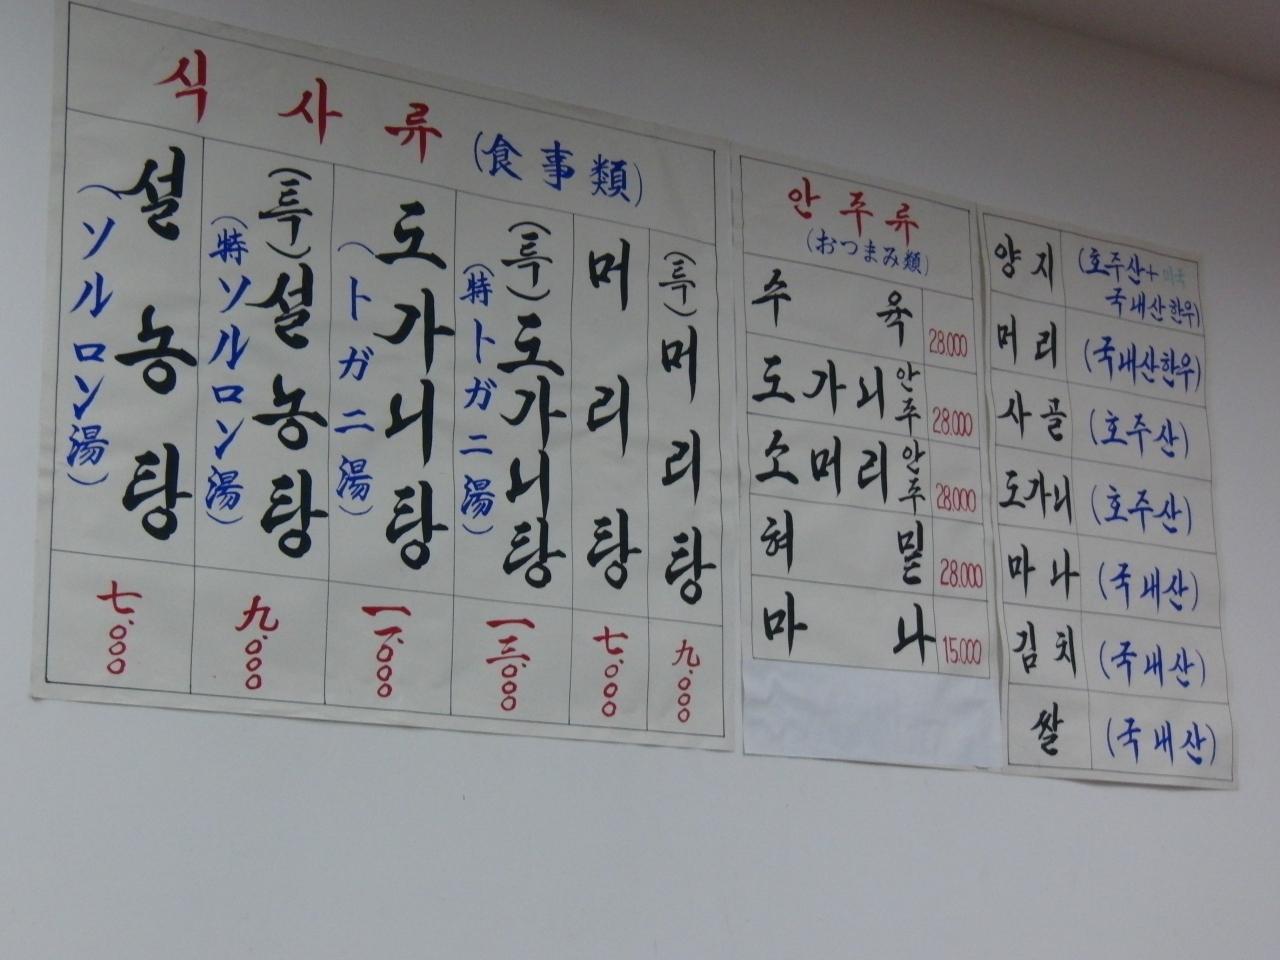 식사류 (食事類)
설농탕
(ソルロン湯)
七.000
(특)설농탕
(特ソルロン湯)
九.000
도가니탕
(トガニ湯)
一一.000
(특)도가니탕
(特トガニ湯)
一三.000
머리탕
七.000
(특)머리탕
九.000
안주류
(おつまみ類)
수육 28.000
도가니안주 28.000
소머리안주 28.000
혀밑 28.000
마나 15.000
양지 (호주산+미국
국내산한우)
머리 (국내산한우)
사골 (호주산)
도가니 (호주산)
마나 (국내산)
김치 (국내산)
쌀 (국내산)